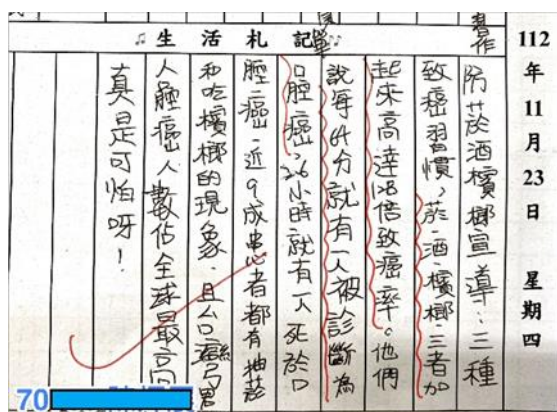 習作
112年11月23日 星期四
生活札記
防菸酒檳榔宣導:三種
致癌習慣,菸、酒、檳榔,三者加
起來高達128倍致癌率。他們
說每64分就有一人被診斷為
口腔癌,2.6小時就有一人死於口
腔癌,近9成患者都有抽菸
和吃檳榔的現象,且台灣男
人腔癌人數佔全球最高
真是可怕呀!
70